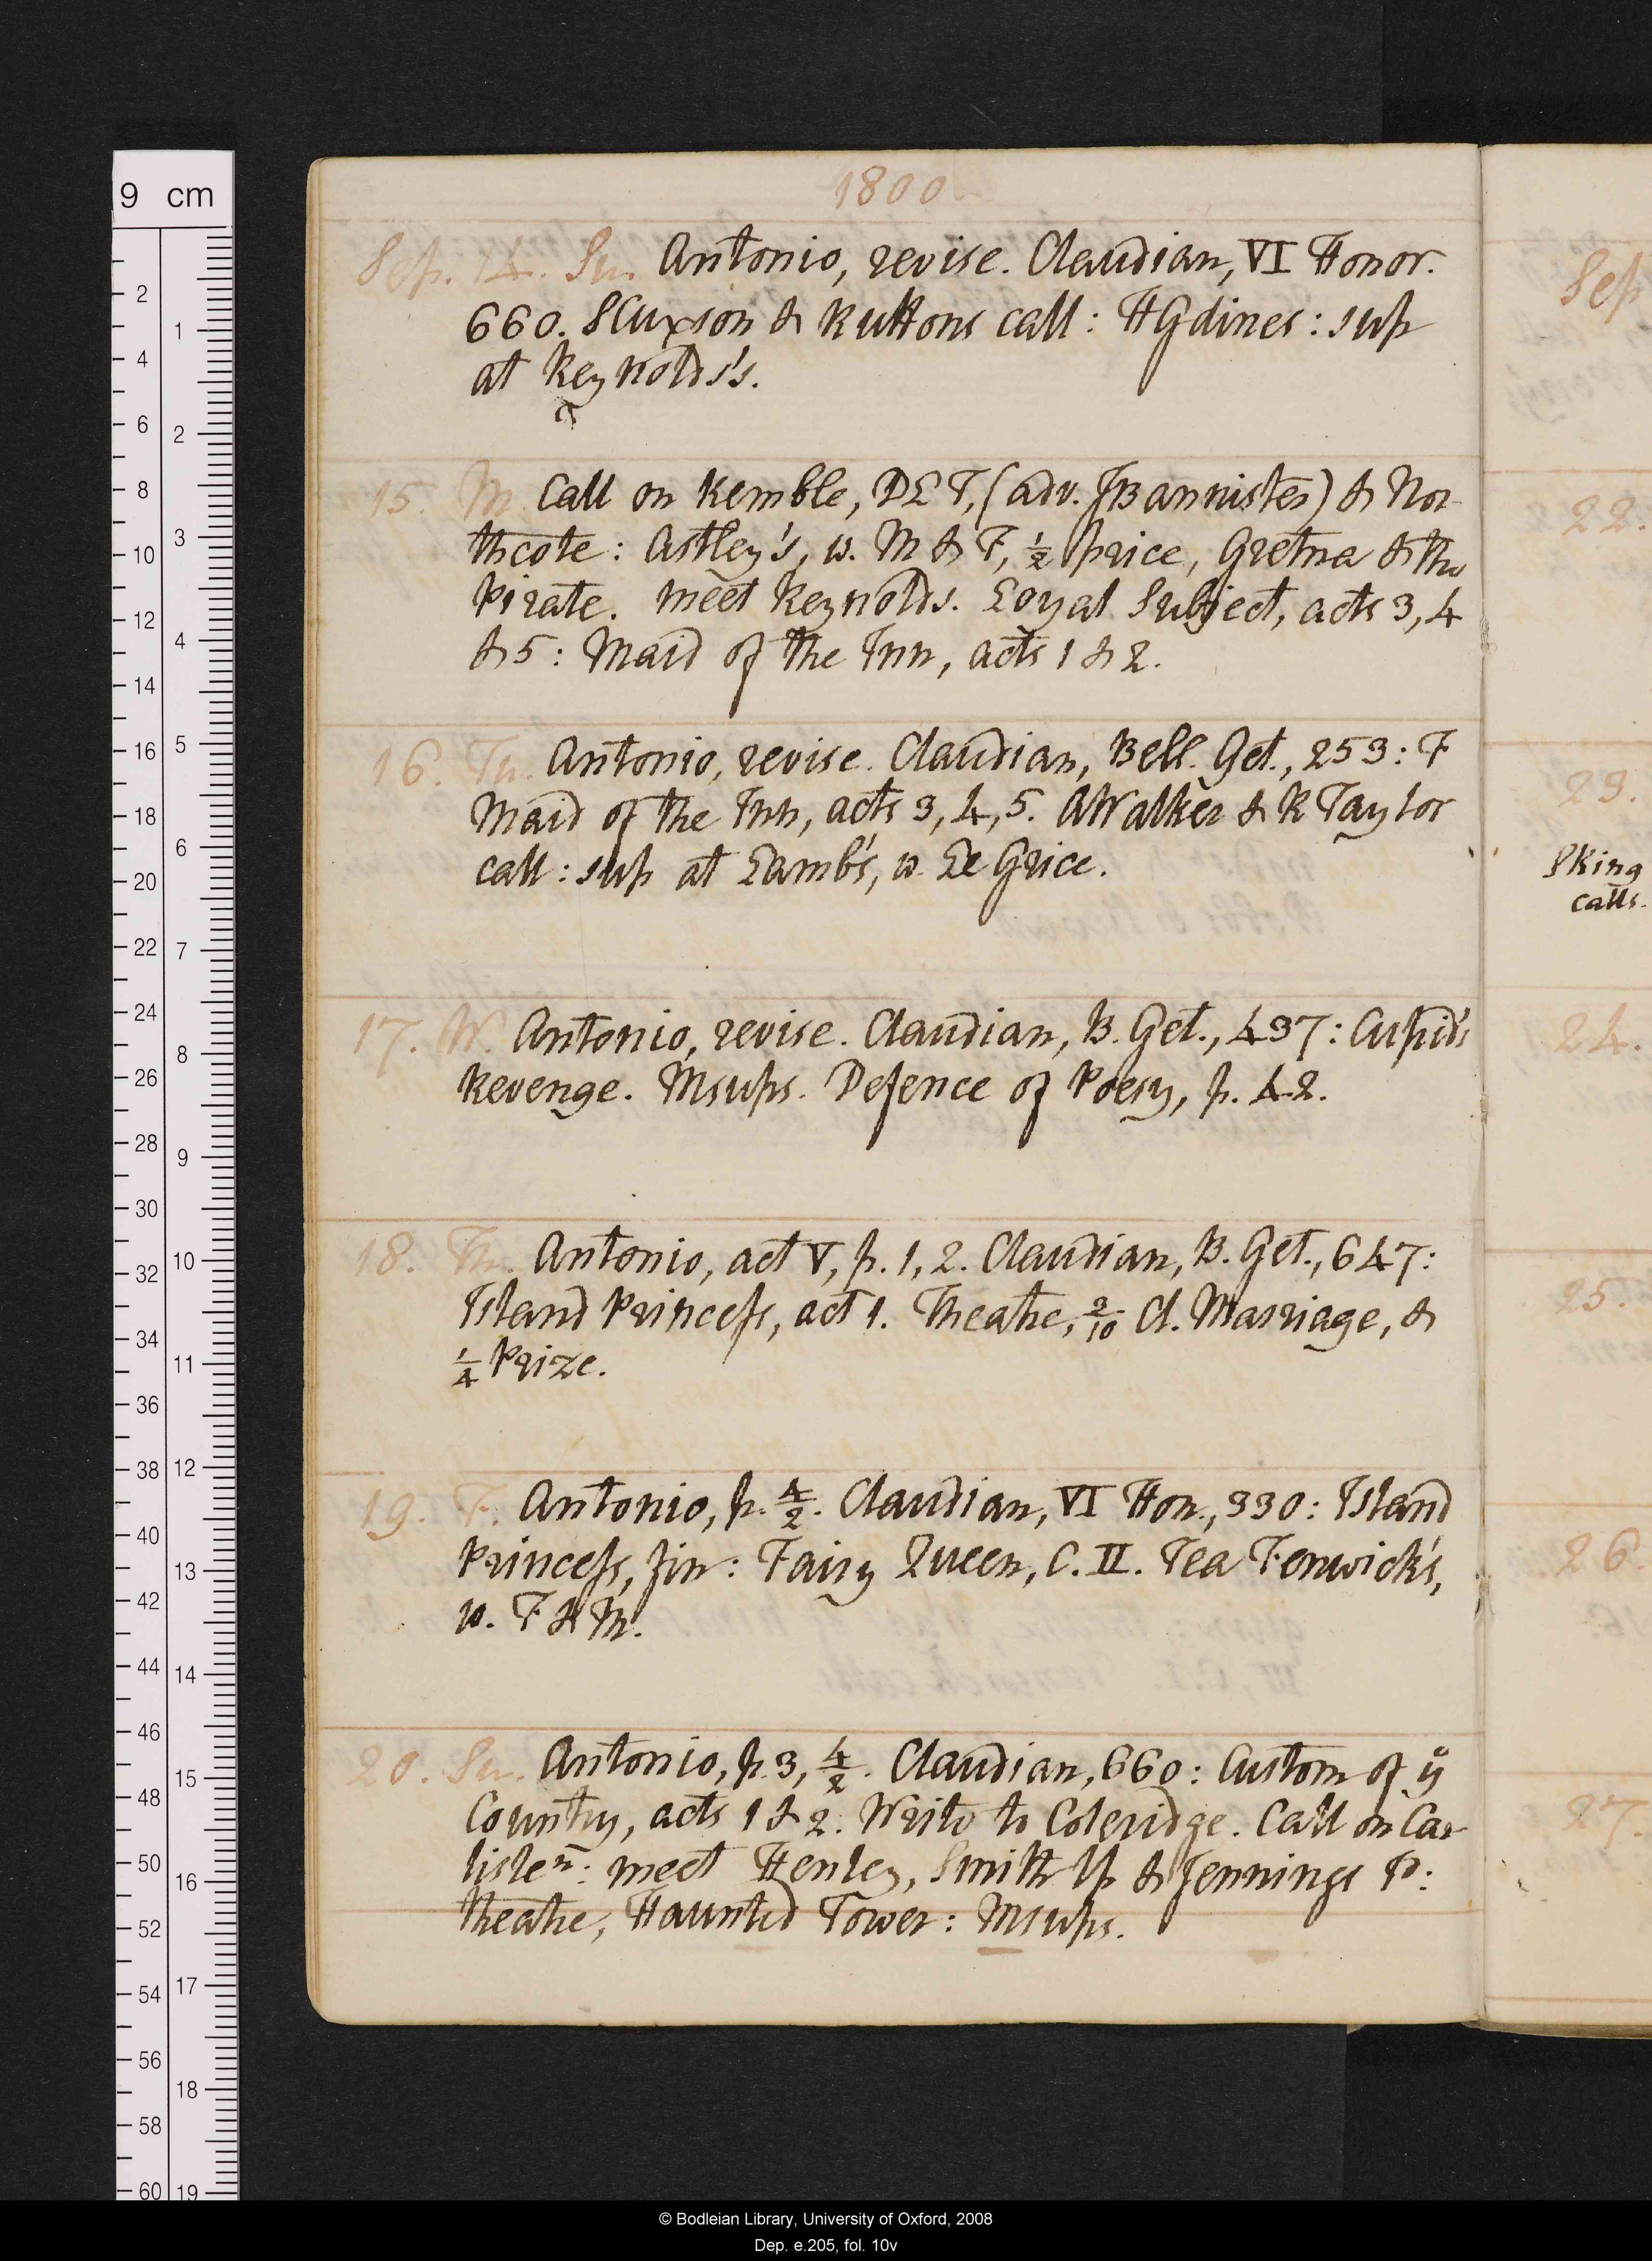 1800
Sep. 14. Su. Antonio, revise. Claudian, VI Honor.
660. SCuxson & Ruttons call: HGdines: sup
at Reynolds's.
15. M. Call on Kemble, DLT, (adv. JBannister) & Nor-
thcote: Astley's, w. M & F, ½ price, Gretna & the
Pirate. meet Reynolds. Loyal Subject, acts 3, 4
& 5: Maid of the Inn, acts 1 & 2.
16. Tu. Antonio, revise. Claudian, Bell. Get., 253: F
Maid of the Inn, acts 3, 4, 5. AWalker & R Taylor
call: sup at Lamb's, w. Le Grice.
17. W. Antonio, revise. Claudian, B. Get., 437: Cupid's
Revenge. Msups. Defence of Poesy, p. 42.
18. Th. Antonio, act V, p. 1, 2. Claudian, B. Get., 647:
Island Princess, act 1. Theatre, 2/10 Cl. Marriage, &
¼ Prize.
19. F. Antonio, p. 4/2. Claudian, VI Hon., 330: Island
Princess, fin: Fairy Queen, C. II. Tea Fenwick's,
w. F & M.
20. Sa. Antonio, p. 3, 4/2. Claudian, 660: Custom of ye
Country, acts 1 & 2. Write to Coleridge. Call on Car-
lisle n: meet Henley, Smith Up & Jennings P:
theatre, Haunted Tower: Msups.
Sep
22.
23.
PKing
calls.
24.
25.
26
27.
9 cm
2
4
6
8
10
12
14
16
18
20
22
24
26
28
30
32
34
36
38
40
42
44
46
48
50
52
54
56
58
60
1
2
3
4
5
6
7
8
9
10
11
12
13
14
15
16
17
18
19
© Bodleian Library, University of Oxford, 2008
Dep. e.205, fol. 10v